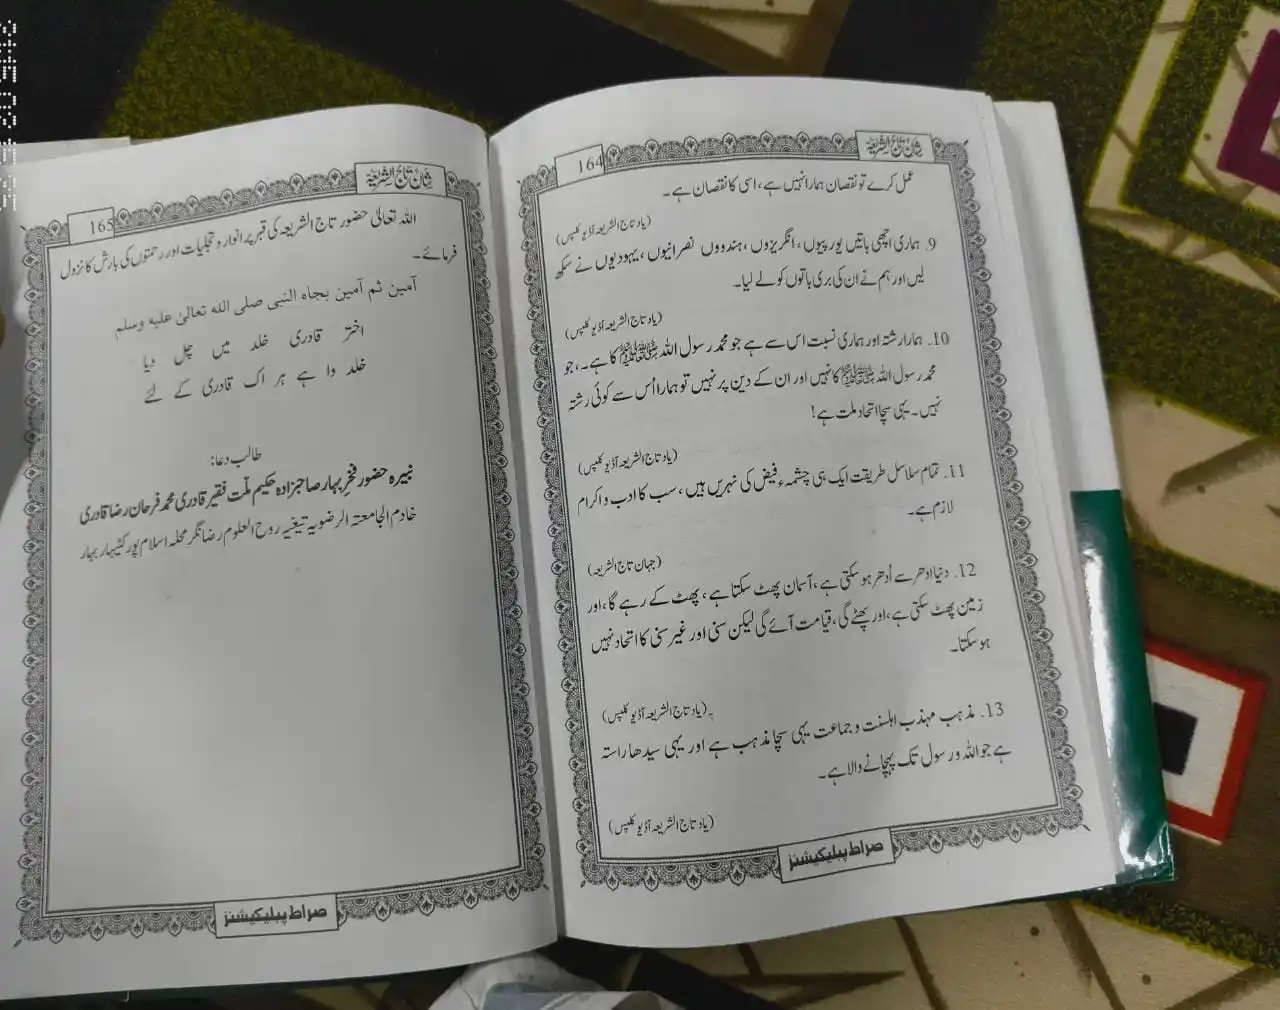 شانِ تاج الشریعہ
164
عمل کرے تو نقصان ہمارا نہیں ہے، اسی کا نقصان ہے۔
(یاد تاج الشریعہ آڈیو کلپس)
9. ہماری اچھی باتیں یورپیوں، انگریزوں، ہندووں نصرانیوں، یہودیوں نے سیکھ
لیں اور ہم نے ان کی بری باتوں کو لے لیا۔
(یاد تاج الشریعہ آڈیو کلپس)
10. ہمارا رشتہ اور ہماری نسبت اس سے ہے جو محمد رسول اللہ ﷺ کا ہے۔، جو
محمد رسول اللہ ﷺ کا نہیں اور ان کے دین پر نہیں تو ہمارا اُس سے کوئی رشتہ
نہیں۔ یہی سچا اتحاد ملت ہے!
(یاد تاج الشریعہ آڈیو کلپس)
11. تمام سلاسل طریقت ایک ہی چشمہء فیض کی نہریں ہیں، سب کا ادب و اکرام
لازم ہے۔
(جہان تاج الشریعہ)
12. دنیا ادھر سے اُدھر ہو سکتی ہے، آسمان پھٹ سکتا ہے، پھٹ کے رہے گا، اور
زمین پھٹ سکتی ہے، اور پھٹے گی، قیامت آئے گی لیکن سنی اور غیر سنی کا اتحاد نہیں
ہو سکتا۔
(یاد تاج الشریعہ آڈیو کلپس)
13. مذہب مہذب اہلسنت و جماعت یہی سچا مذہب ہے اور یہی سیدھا راستہ
ہے جو اللہ و رسول تک پہچانے والا ہے۔
(یاد تاج الشریعہ آڈیو کلپس)
صراط پبلیکیشنز
شانِ تاج الشریعہ
165
اللہ تعالیٰ حضور تاج الشریعہ کی قبر پر انوار و تجلیات اور رحمتوں کی بارش کا نزول
فرمائے۔
آمین ثم آمین بجاہ النبی صلی اللہ تعالیٰ علیہ وسلم
اختر قادری خلد میں چل دیا
خلد وا ہے ہر اک قادری کے لئے
طالب دعا:
نبیرہ حضور فخرِ بہار صاحبزادہ حکیم ملّت فقیر قادری محمد فرحان رضا قادری
خادم الجامعتہ الرضویہ تیغیہ روح العلوم رضا نگر محلہ اسلام پور کٹیہار بہار
صراط پبلیکیشنز